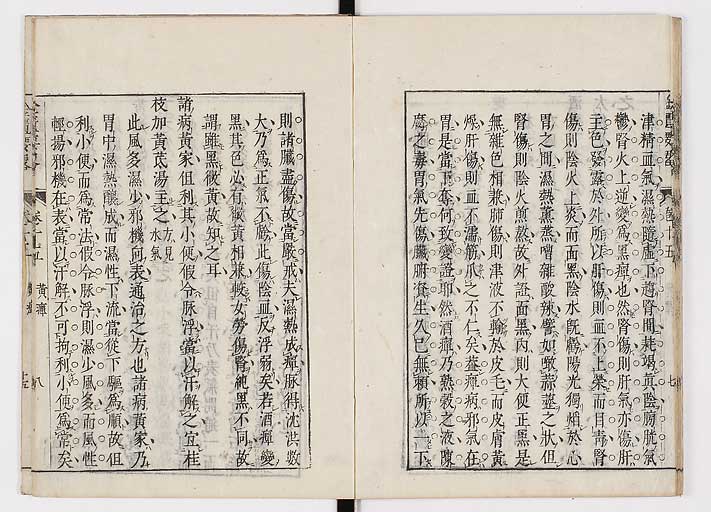 津精血氣濕熱蹱虛下趨腎間耗竭眞陰膀胱氣
鬱腎火上逆變爲黑疸也然腎傷則肝氣亦傷肝
主色發露於外所以肝傷則血不上榮而目靑腎
傷則陰火上炎而面黑陰水旣虧陽光獨熾於心
胃之間濕熱熏蒸嘈雜酸辣譬如噉蒜虀之狀但
腎傷則陰火煎熬故外證面黑內則大便正黑是
無雜色相兼肺傷則津液不輸於皮毛而皮膚黃
燥肝傷則血不濡筋爪之不仁矣蓋疸病邪氣在
胃是當下奈何致變證耶然酒疸乃熱穀之液釀
之毒胃氣先傷臟腑資生久已無賴所以一下
則諸臟盡傷故當嚴戒夫濕熱成疸脉得沈洪數
大乃爲正氣不虧此傷陰血反浮弱矣若酒疸變
黑其色必有微黃相兼較女勞傷腎純黑不同故
謂雖黑微黃故知之耳
諸病黃家但利其小便假令脉浮當以汗解之宜桂
枝加黃芪湯主之 方見水氣
此風多濕少邪機向表通治之方也諸病黃家乃
胃中濕熱釀成而濕性下流當從下驅爲順故但
利小便而爲常法假令脉浮則濕少風多而風性
輕揚邪機在表當以汗解不可拘利小便爲常矣
卷十五
七
黃疸
八